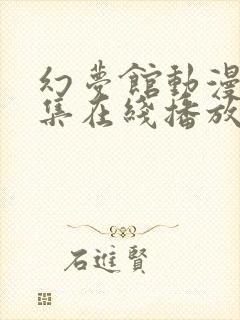 幻夢館動漫
集在綫播放
石進賢